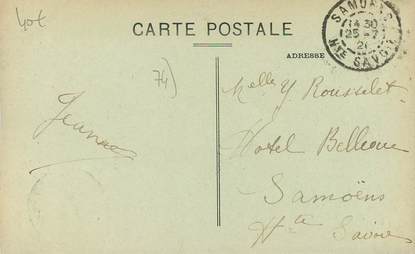 40t
CARTE POSTALE
SAMOËNS
14 30
25 - 7
21
HTE SAVOIE
ADRESSE
74)
Melle Y Rousselet
Hotel Bellevue
Samoëns
Hte Savoie
Jeanne